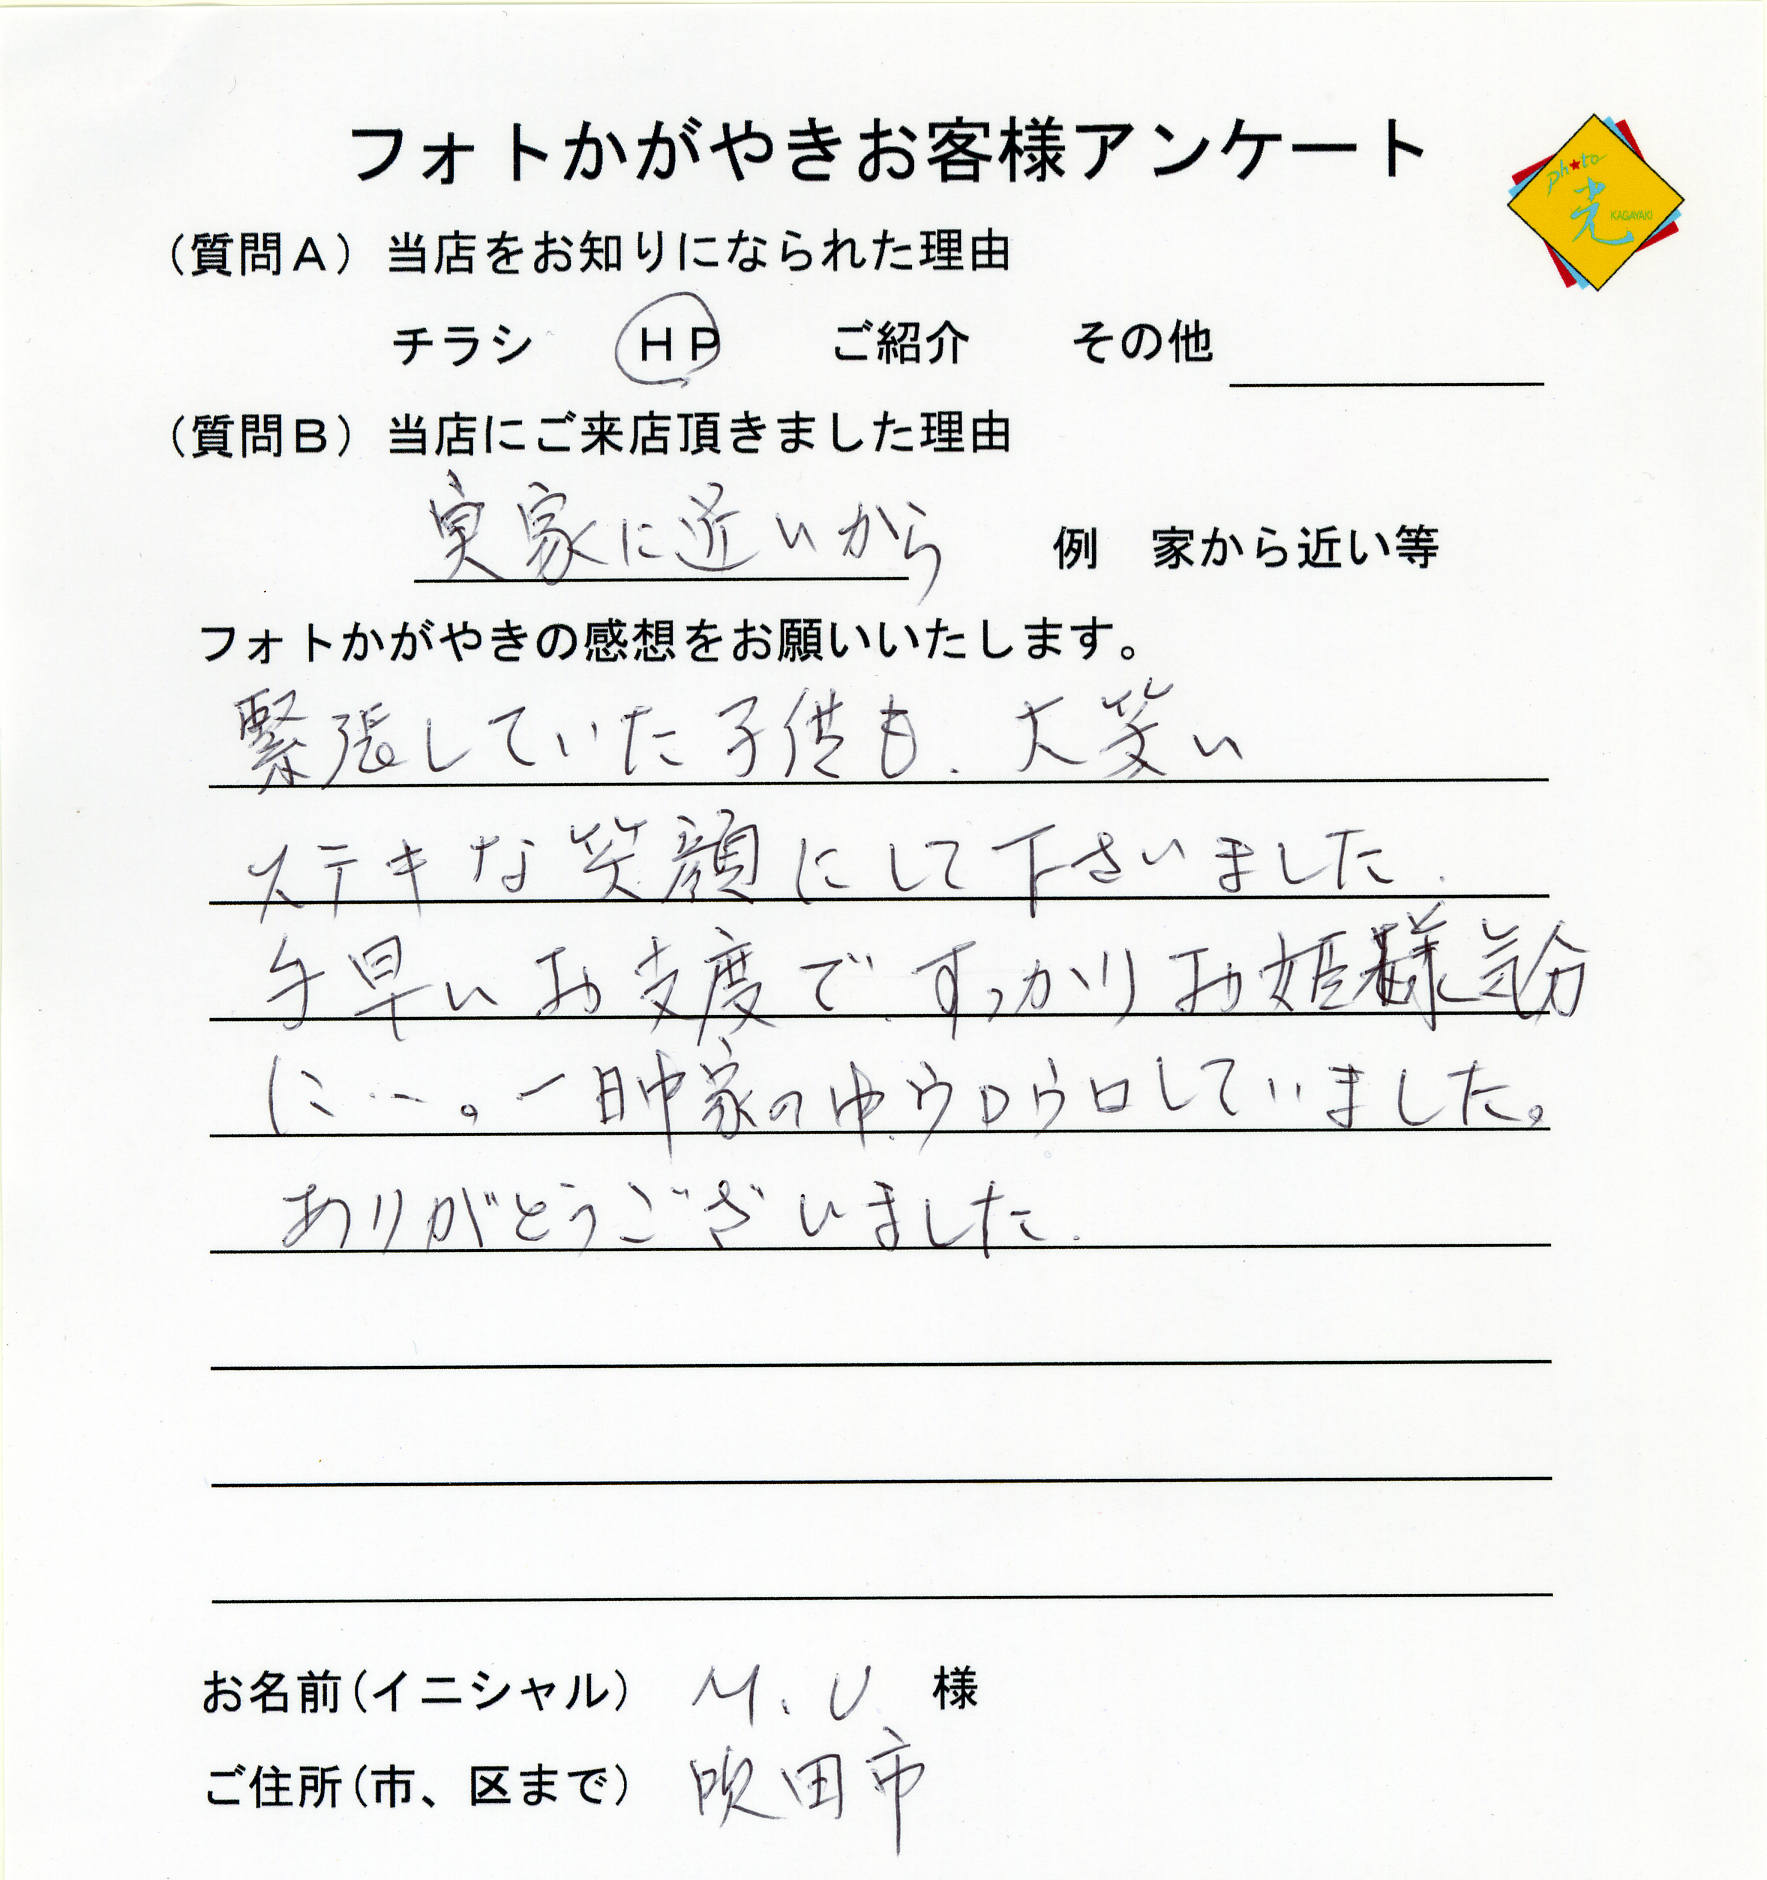 フォトかがやきお客様アンケート
photo
光
KAGAYAKI
（質問Ａ）当店をお知りになられた理由
チラシ　ＨＰ　ご紹介　その他
（質問Ｂ）当店にご来店頂きました理由
実家に近いから　例　家から近い等
フォトかがやきの感想をお願いいたします。
緊張していた子供も、大笑い
ステキな笑顔にして下さいました．
手早いお支度で、すっかりお姫様気分
に…。一日中家の中、ウロウロしていました。
ありがとうございました．
お名前（イニシャル）　M．U．様
ご住所（市、区まで）　吹田市